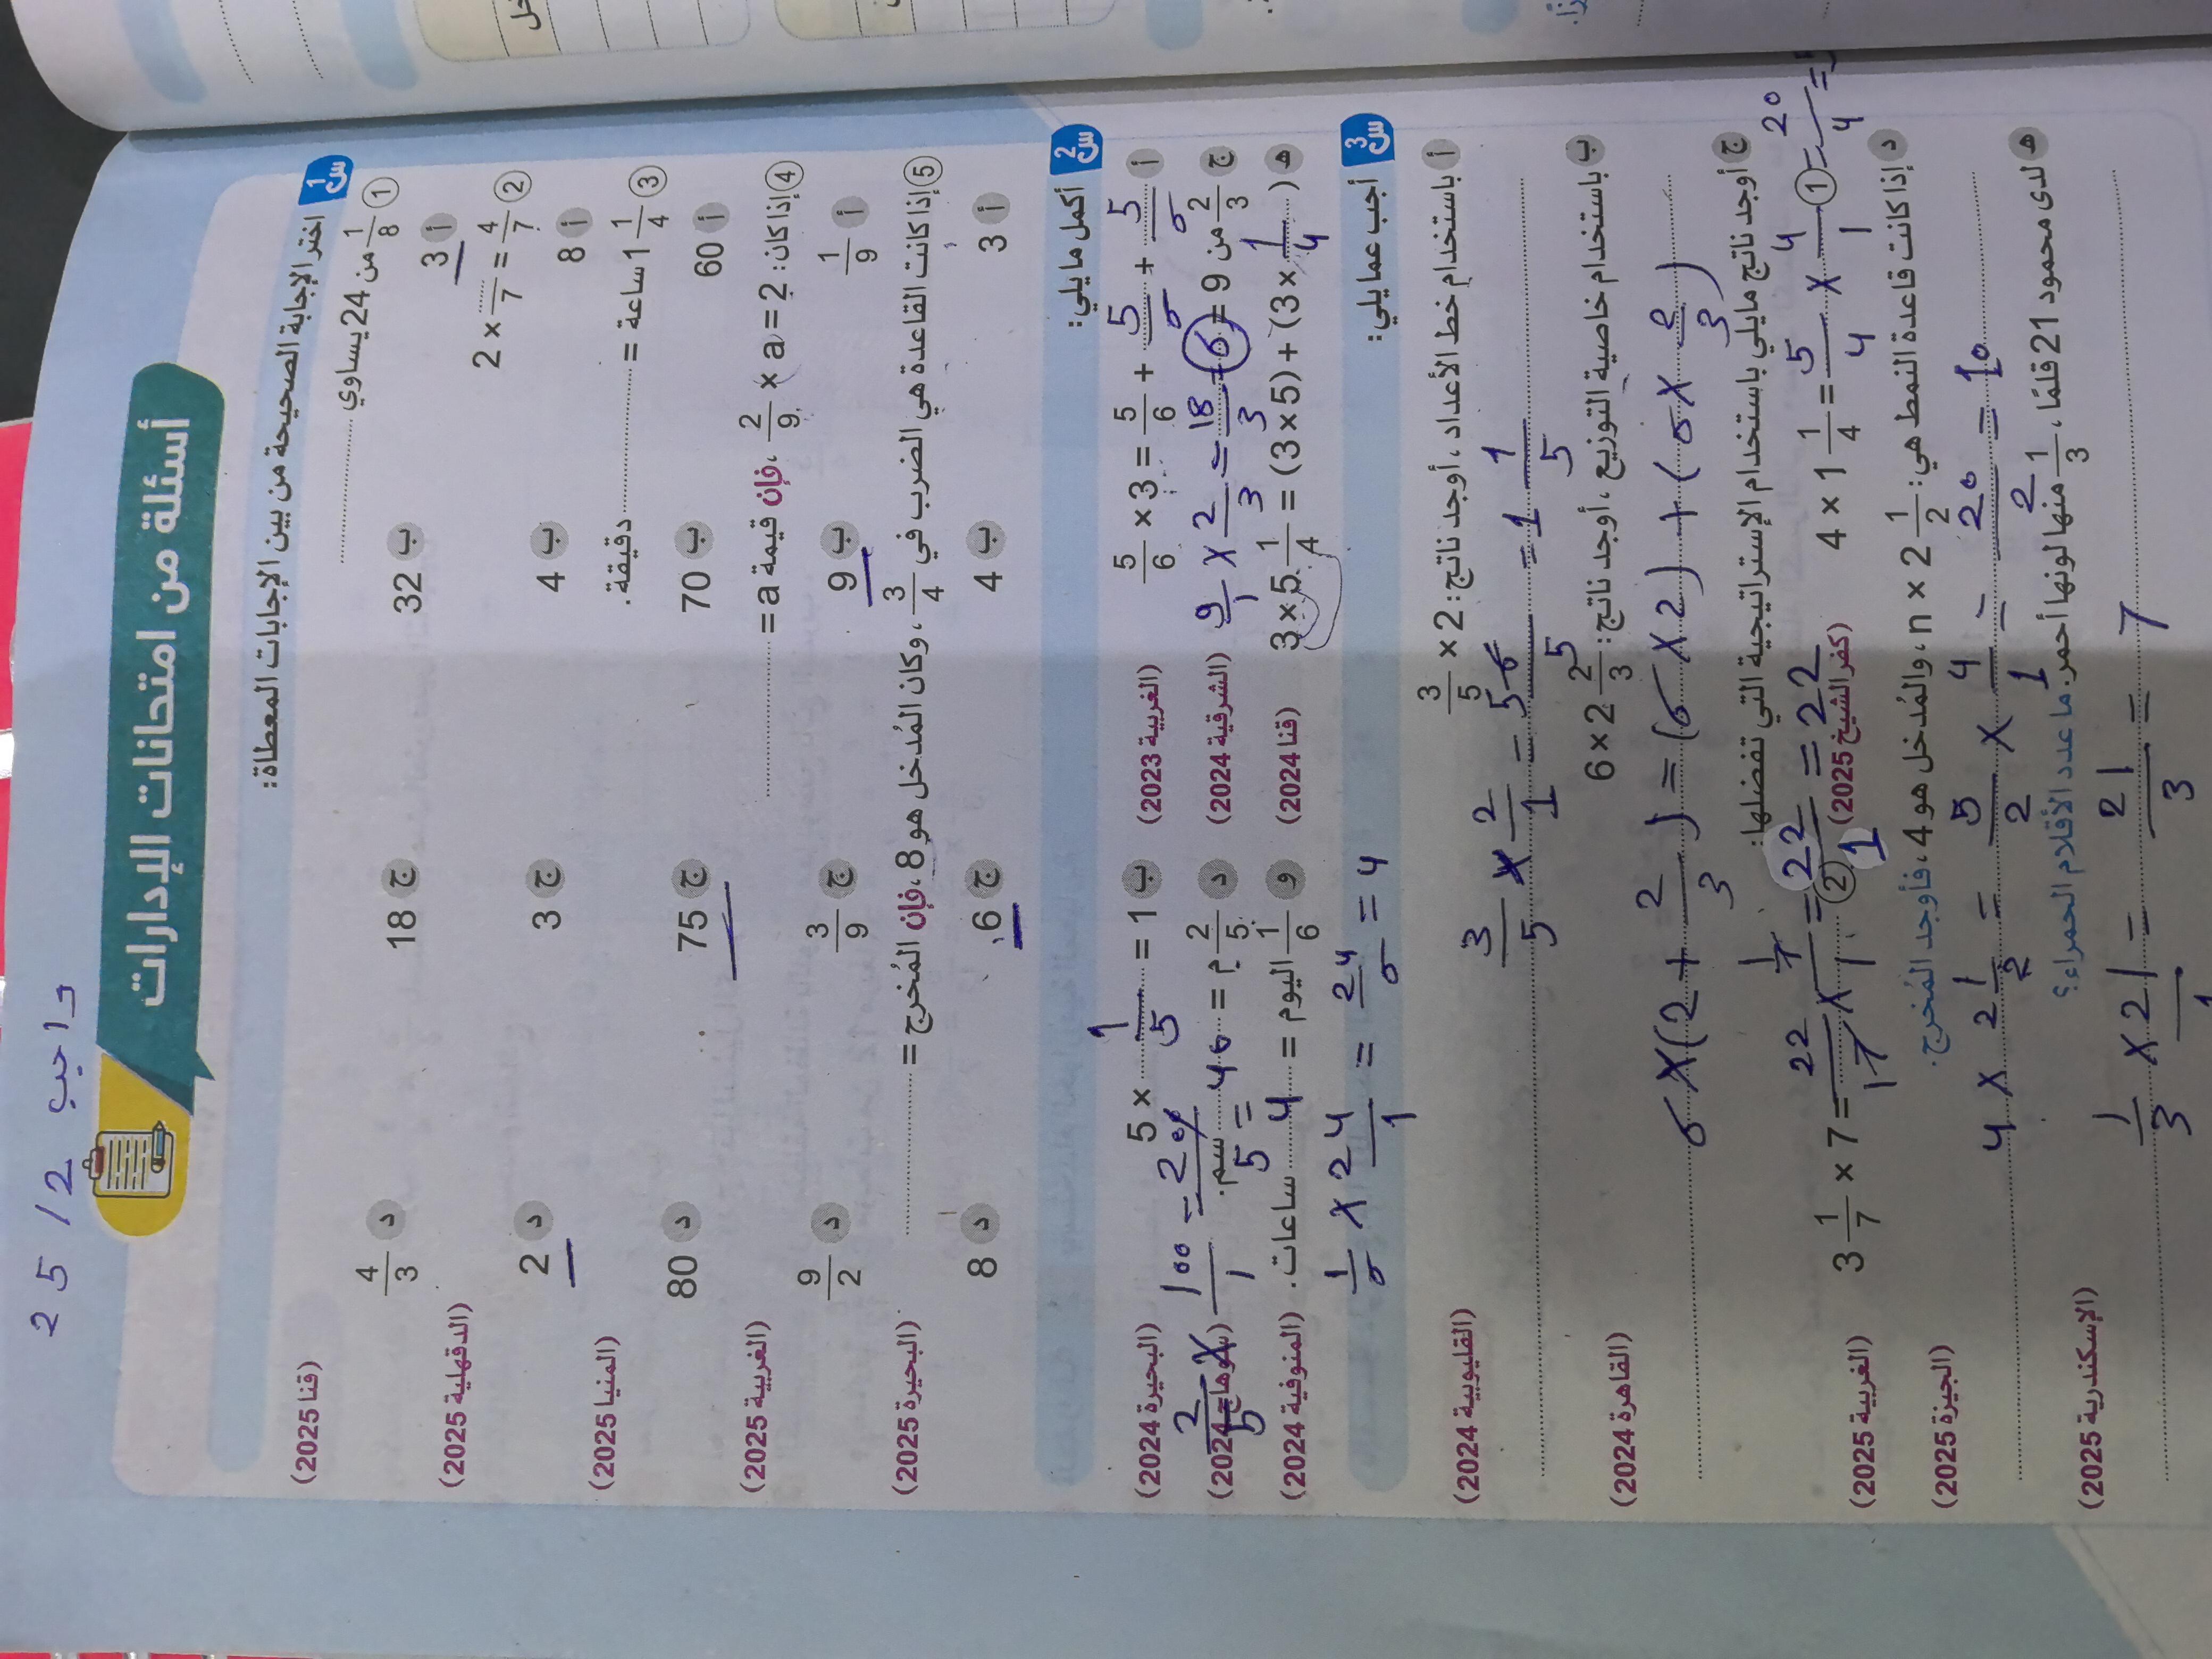 25 / 2 واجب
أسئلة من امتحانات الإدارات
س1 اختر الإجابة الصحيحة من بين الإجابات المعطاة:
1 1/8 من 24 يساوي .......... (قنا 2025)
أ 3 ب 32 ج 18 د 4/3
2 2 × ....../7 = 4/7 (الدقهلية 2025)
أ 8 ب 4 ج 3 د 2
3 1 1/4 ساعة = .......... دقيقة. (المنيا 2025)
أ 60 ب 70 ج 75 د 80
4 إذا كان: 2/9 × a = 2، فإن قيمة a = .......... (الغربية 2025)
أ 1/9 ب 9 ج 3/9 د 9/2
5 إذا كانت القاعدة هي الضرب في 3/4، وكان المُدخل هو 8، فإن المُخرج = .......... (البحيرة 2025)
أ 3 ب 4 ج 6 د 8
س2 أكمل ما يلي:
أ 5/6 × 3 = 5/6 + 5/6 + 5/6 (الغربية 2023)
ب 5 × 1/5 = 1 (البحيرة 2024)
ج 2/3 من 9 = 6 (الشرقية 2024)
9/1 × 2/3 = 18/3 =
د 2/5 م = 40 سم. (سوهاج 2024)
2/5 × 100/1 = 200/5 =
ه 3 × 5 1/4 = (3 × 5) + (3 × 1/4) (قنا 2024)
و 1/6 اليوم = 4 ساعات. (المنوفية 2024)
1/6 × 24/1 = 24/6 = 4
س3 أجب عما يلي:
أ باستخدام خط الأعداد، أوجد ناتج: 2 × 3/5 (القليوبية 2024)
3/5 × 2/1 = 6/5 = 1 1/5
ب باستخدام خاصية التوزيع، أوجد ناتج: 6 × 2 2/3 (القاهرة 2024)
6 × (2 + 2/3) = (6 × 2) + (6 × 2/3)
ج أوجد ناتج مايلي باستخدام الإستراتيجية التي تفضلها:
1 4 × 1 1/4 = 5/4 × 4/1 = 20/4 = (كفر الشيخ 2025)
2 3 1/7 × 7 = 22/7 × 7/1 = 22/1 = 22 (الغربية 2025)
د إذا كانت قاعدة النمط هي: n × 2 1/2، والمُدخل هو 4، فأوجد المُخرج. (الجيزة 2025)
4 × 2 1/2 = 5/2 × 4/1 = 20/2 = 10
ه لدى محمود 21 قلمًا، 1/3 منها لونها أحمر. ما عدد الأقلام الحمراء؟ (الإسكندرية 2025)
1/3 × 21/1 = 21/3 = 7